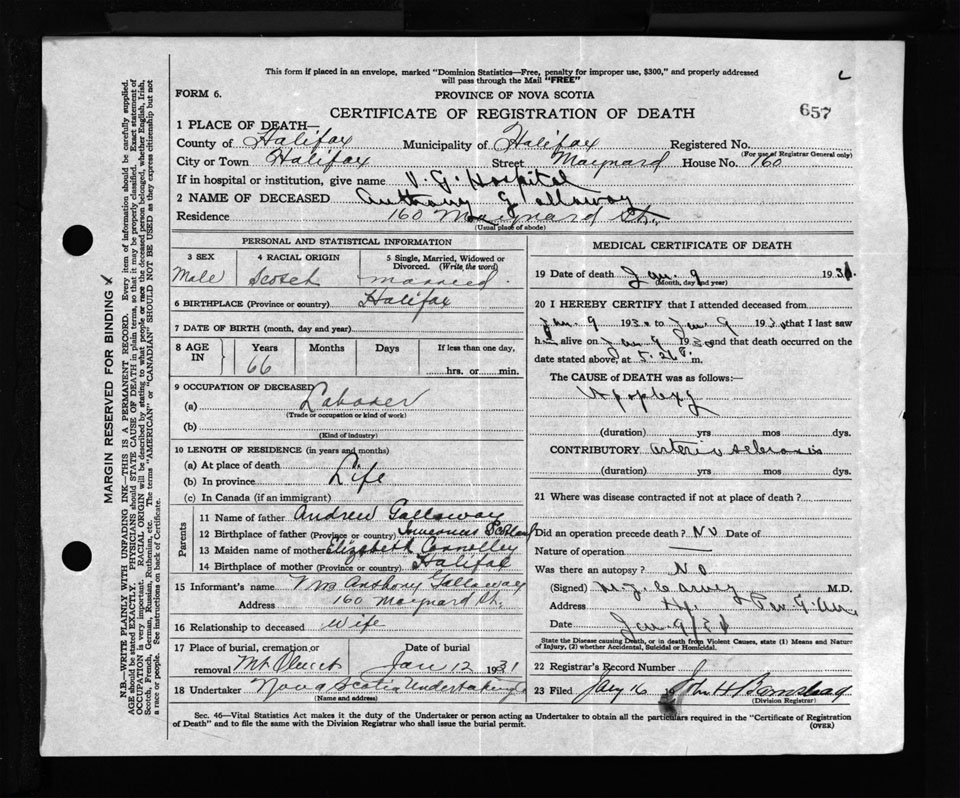 This form if placed in an envelope, marked "Dominion Statistics—Free, penalty for improper use, $300," and properly addressed
will pass through the Mail "FREE"
FORM 6. PROVINCE OF NOVA SCOTIA
CERTIFICATE OF REGISTRATION OF DEATH 657
1 PLACE OF DEATH—
County of Halifax Municipality of Halifax Registered No.
(For use of Registrar General only)
City or Town Halifax Street Maynard House No. 160
If in hospital or institution, give name V. G. Hospital
2 NAME OF DECEASED Anthony Galloway
Residence 160 Maynard St.
(Usual place of abode)
PERSONAL AND STATISTICAL INFORMATION
3 SEX 4 RACIAL ORIGIN 5 Single, Married, Widowed or Divorced. (Write the word)
Male Scotch married.
6 BIRTHPLACE (Province or country) Halifax
7 DATE OF BIRTH (month, day and year)
8 AGE IN Years Months Days If less than one day,
66 hrs. or min.
9 OCCUPATION OF DECEASED
(a) Laborer
(Trade or occupation or kind of work)
(b)
(Kind of industry)
10 LENGTH OF RESIDENCE (in years and months)
(a) At place of death
(b) In province Life
(c) In Canada (if an immigrant)
Parents
11 Name of father Andrew Galloway
12 Birthplace of father (Province or country) Scotland
13 Maiden name of mother Elizabeth Connolley
14 Birthplace of mother (Province or country) Halifax
15 Informant's name Mrs Anthony Galloway
Address 160 Maynard St.
16 Relationship to deceased wife
17 Place of burial, cremation or removal Mt. Olivet Date of burial Jan 12 1931
18 Undertaker Nova Scotia Undertaking
(Name and address)
MEDICAL CERTIFICATE OF DEATH
19 Date of death Jan. 9 1931
(Month, day and year)
20 I HEREBY CERTIFY that I attended deceased from
Jan. 9 193 to Jan. 9 193 that I last saw
h alive on Jan 9 193 and that death occurred on the
date stated above, at 5. m.
The CAUSE of DEATH was as follows:—
Apoplexy
(duration) yrs mos dys.
CONTRIBUTORY arterio sclerosis
(duration) yrs mos dys.
21 Where was disease contracted if not at place of death?
Did an operation precede death? No Date of
Nature of operation —
Was there an autopsy? No
(Signed) M.D.
Address
Date Jan. 9/31
State the Disease causing Death, or in death from Violent Causes, state (1) Means and Nature
of Injury, (2) whether Accidental, Suicidal or Homicidal.
22 Registrar's Record Number
23 Filed Jany 16
(Division Registrar)
Sec. 46—Vital Statistics Act makes it the duty of the Undertaker or person acting as Undertaker to obtain all the particulars required in the "Certificate of Registration
of Death" and to file the same with the Division Registrar who shall issue the burial permit.
(OVER)
MARGIN RESERVED FOR BINDING
N.B.—WRITE PLAINLY WITH UNFADING INK—THIS IS A PERMANENT RECORD. Every item of information should be carefully supplied.
AGE should be stated EXACTLY. PHYSICIANS should STATE CAUSE OF DEATH in plain terms, so that it may be properly classified. Exact statement of
OCCUPATION is very important. RACIAL ORIGIN will be described by stating to what people or race the deceased person belonged, whether English, Irish,
Scotch, French, German, Russian, Ruthenian, etc. The terms "AMERICAN" or "CANADIAN" SHOULD NOT BE USED as they express citizenship but not
a race or people. See instructions on back of Certificate.